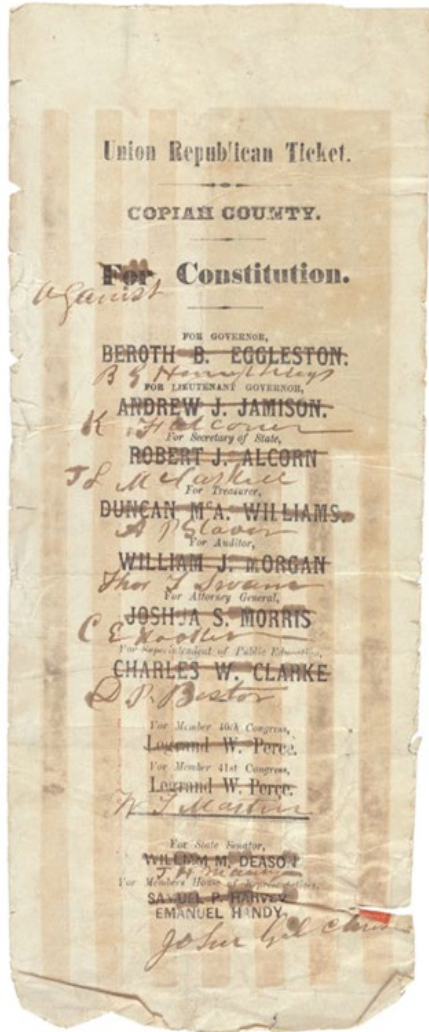 Union Republican Ticket.
COPIAH COUNTY.
For Constitution.
against
FOR GOVERNOR,
BEROTH B. EGGLESTON.
B G Humphreys
FOR LIEUTENANT GOVERNOR,
ANDREW J. JAMISON.
K Falconer
For Secretary of State,
ROBERT J. ALCORN
For Treasurer,
DUNCAN McA. WILLIAMS.
For Auditor,
WILLIAM J. MORGAN
Thos T Swann
For Attorney General,
JOSHUA S. MORRIS
C E Hooker
For Superintendent of Public Education,
CHARLES W. CLARKE
D. P. Bestor
For Member 40th Congress,
Legrand W. Perce.
For Member 41st Congress,
Legrand W. Perce.
W T Martin
For State Senator,
WILLIAM M. DEASON
For Members House of Representatives,
SAMUEL P. HARVEY
EMANUEL HANDY.